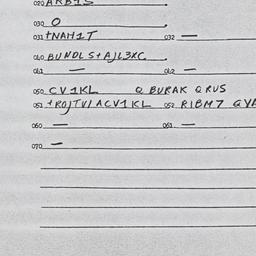 020 ARB1S
030 O
031 +NAH1T 032 —
040 BUNDL S+AJL3XC
041 — 042 —
050 CV1KL Q BURAK QRUS
051 +ROJTVI ACV1KL 052 RIBM7 QYA
060 — 061 —
070 —